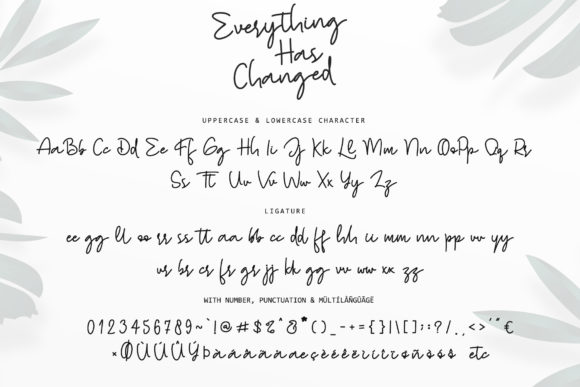 Everything
Has
Changed
UPPERCASE & LOWERCASE CHARACTER
Aa Bb Cc Dd Ee Ff Gg Hh Ii Jj Kk Ll Mm Nn Oo Pp Qq Rr
Ss Tt Uu Vv Ww Xx Yy Zz
LIGATURE
ee gg ll oo rr ss tt aa bb cc dd ff hh ii mm nn pp uu yy
us bs cs fs gs jj kk gg vv ww xx zz
WITH NUMBER, PUNCTUATION & MÜLTÍLÀÑGÜÄGË
0123456789~`!@#$%^&*()_-+={}|\[];:?/.,<>'"€